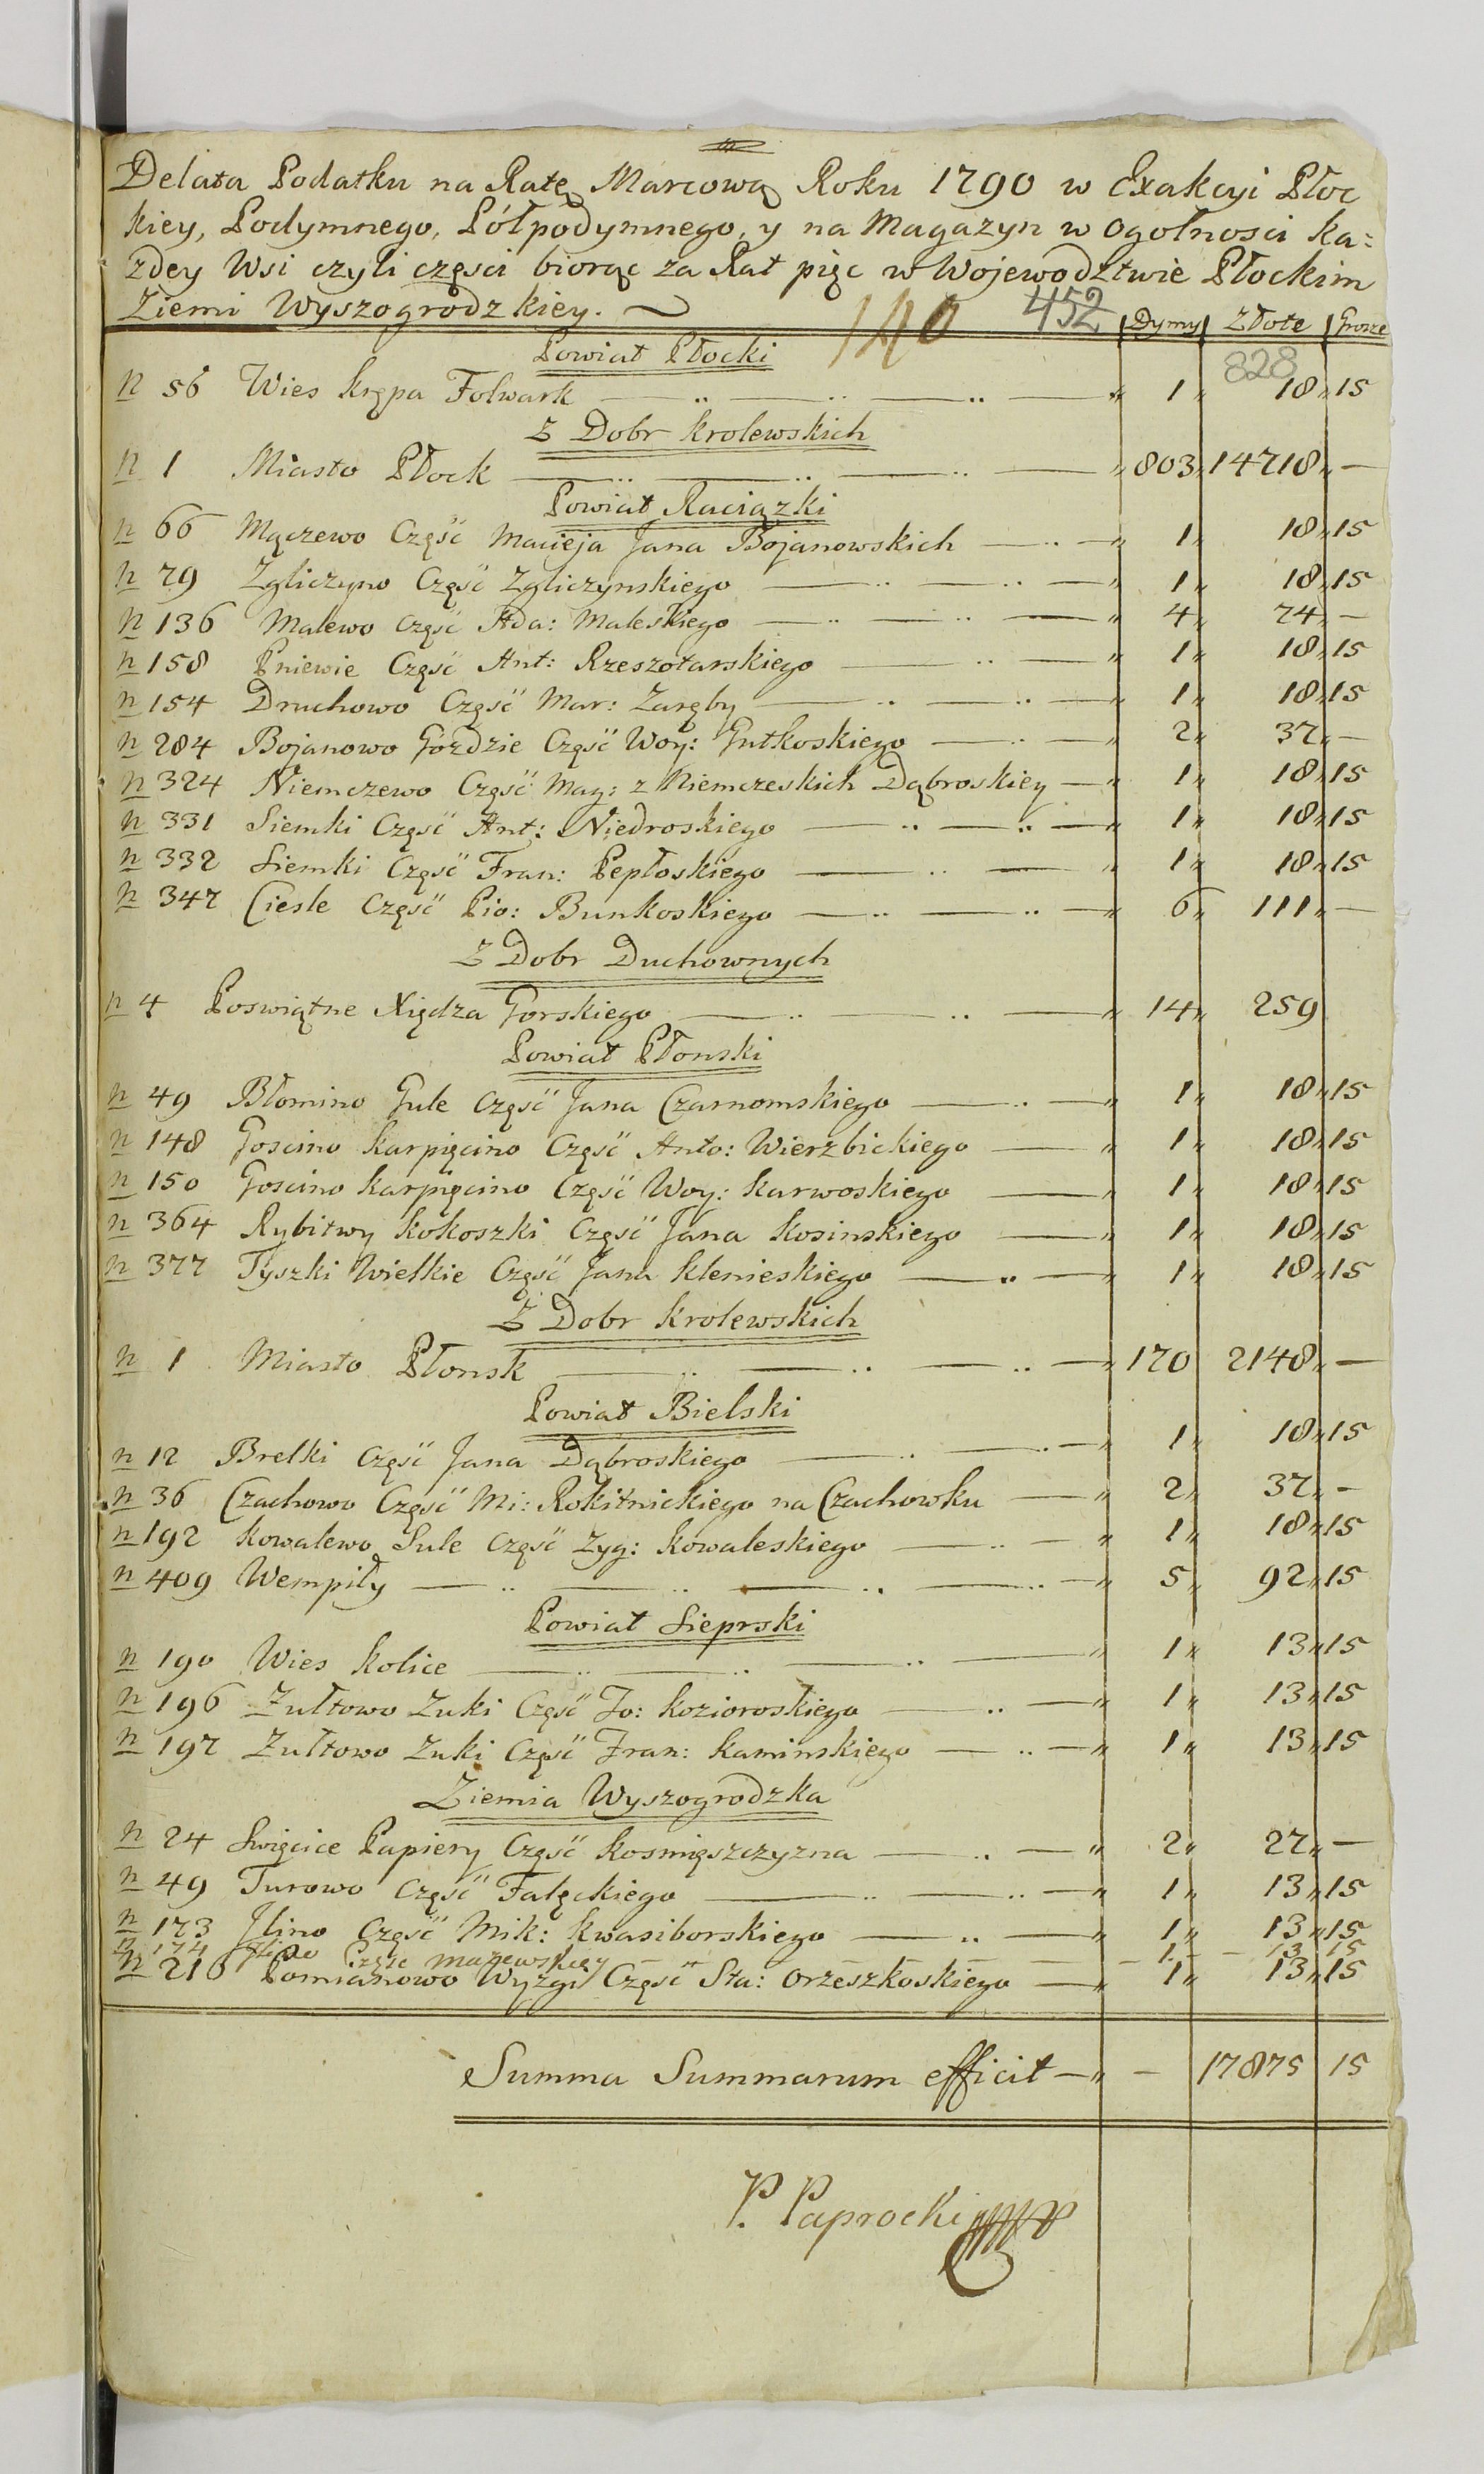 Delata Podatku na Ratę Marcową Roku 1790 w Exakcyi Płoc
kiey, Podymnego, Półpodymnego, y na Magazyn w ogolnosci ka=
zdey Wsi czyli części biorąc za Rat pięc w Wojewodztwie Płockim
Ziemi Wyszogrodzkiey. 140 452 Dymy Złote Grosze
Powiat Płocki 828
N 56 Wies Krępa Folwark 1 18 15
Z Dobr Krolewskich
N 1 Miasto Płock 803 14718 —
Powiat Raciązki
N 66 Mączewo Część Macieja Jana Bojanowskich 1 18 15
N 79 Zgliczyno Część Zgliczynskiego 1 18 15
N 136 Malewo Część Ada: Maleskiego 4 74 —
N 158 Pniewie Część Ant: Rzeszotarskiego 1 18 15
N 154 Druchowo Część Mar: Zaręby 1 18 15
N 284 Bojanowo Gozdzie Część Woy: Gutkoskiego 2 37 —
N 324 Niemczewo Część May: z Niemczeskich Dąbroskiey 1 18 15
N 331 Siemki Część Ant: Niedroskiego 1 18 15
N 332 Siemki Część Fran: Pepłoskiego 1 18 15
N 347 Ciesle Część Pio: Bunkoskiego 6 111 —
Z Dobr Duchownych
N 4 Poswiątne Xiędza Gorskiego 14 259
Powiat Płonski
N 49 Błomino Gule Część Jana Czarnomskiego 1 18 15
N 148 Goscino Karpięcino Część Anto: Wierzbickiego 1 18 15
N 150 Goscino Karpięcino Część Woy: Karwoskiego 1 18 15
N 364 Rybitwy Kokoszki Część Jana Kosinskiego 1 18 15
N 377 Tyszki Wielkie Część Jana Klenieskiego 1 18 15
Z Dobr Krolewskich
N 1 Miasto Płonsk 170 2148 —
Powiat Bielski
N 12 Brelki Część Jana Dąbroskiego 1 18 15
N 36 Czachowo Część Mi: Rokitnickiego na Czachowku 2 37 —
N 192 Kowalewo Sule Część Zyg: Kowaleskiego 1 18 15
N 409 Wempiły 5 92 15
Powiat Sieprski
N 190 Wies Kolice 1 13 15
N 196 Zułtowo Zuki Część Jo: Kozioroskiego 1 13 15
N 197 Zułtowo Zuki Część Fran: Kaminskiego 1 13 15
Ziemia Wyszogrodzka
N 24 Swięcice Papiery Część Kosmięszczyzna 2 27 —
N 49 Turowo Część Fałęckiego 1 13 15
N 173 Ilino Część Mik: Kwasiborskiego 1 13 15
N 174 Ilino Część Mazewskiey 1 13 15
N 216 Pomianowo Wyzgi Część Sta: Orzeszkoskiego 1 13 15
Summa Summarum efficit — 17875 15
P. Paprocki